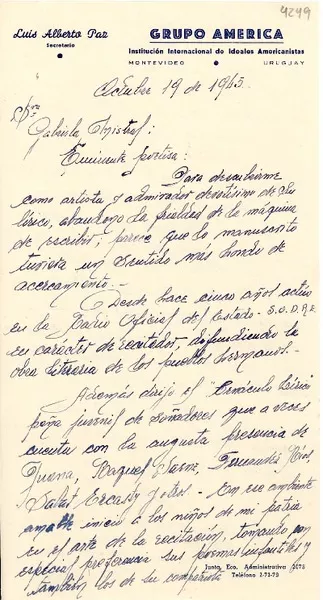 4249
Luis Alberto Paz
Secretario
GRUPO AMERICA
Institución Internacional de Ideales Americanistas
MONTEVIDEO • URUGUAY
Octubre 19 de 1945.
Sra
Gabriela Mistral:
Eminente poetisa:
Para descubrirme
como artista y admirador devotísimo de su
lírico, abandono la frialdad de la máquina
de escribir; parece que lo manuscrito
tuviera un sentido más hondo de
acercamiento.
Desde hace cinco años actúo
en la Radio Oficial del Estado - S.O.D.R.E.
en carácter de recitador, difundiendo la
obra literaria de los pueblos hermanos.-
Además dirijo el "Cenáculo Lírico
peña juvenil de soñadores que a veces
cuenta con la augusta presencia de
Juana, Raquel Saenz, Fernández Ríos,
Sabat Ercasty y otros.- En ese ambiente
amable inicio a los niños de mi patria
en el arte de la recitación, tomando con
especial preferencia sus poemas infantiles y
también los de su compañera
Junta Eco. Administrativa 2075
Teléfono 2-73-73